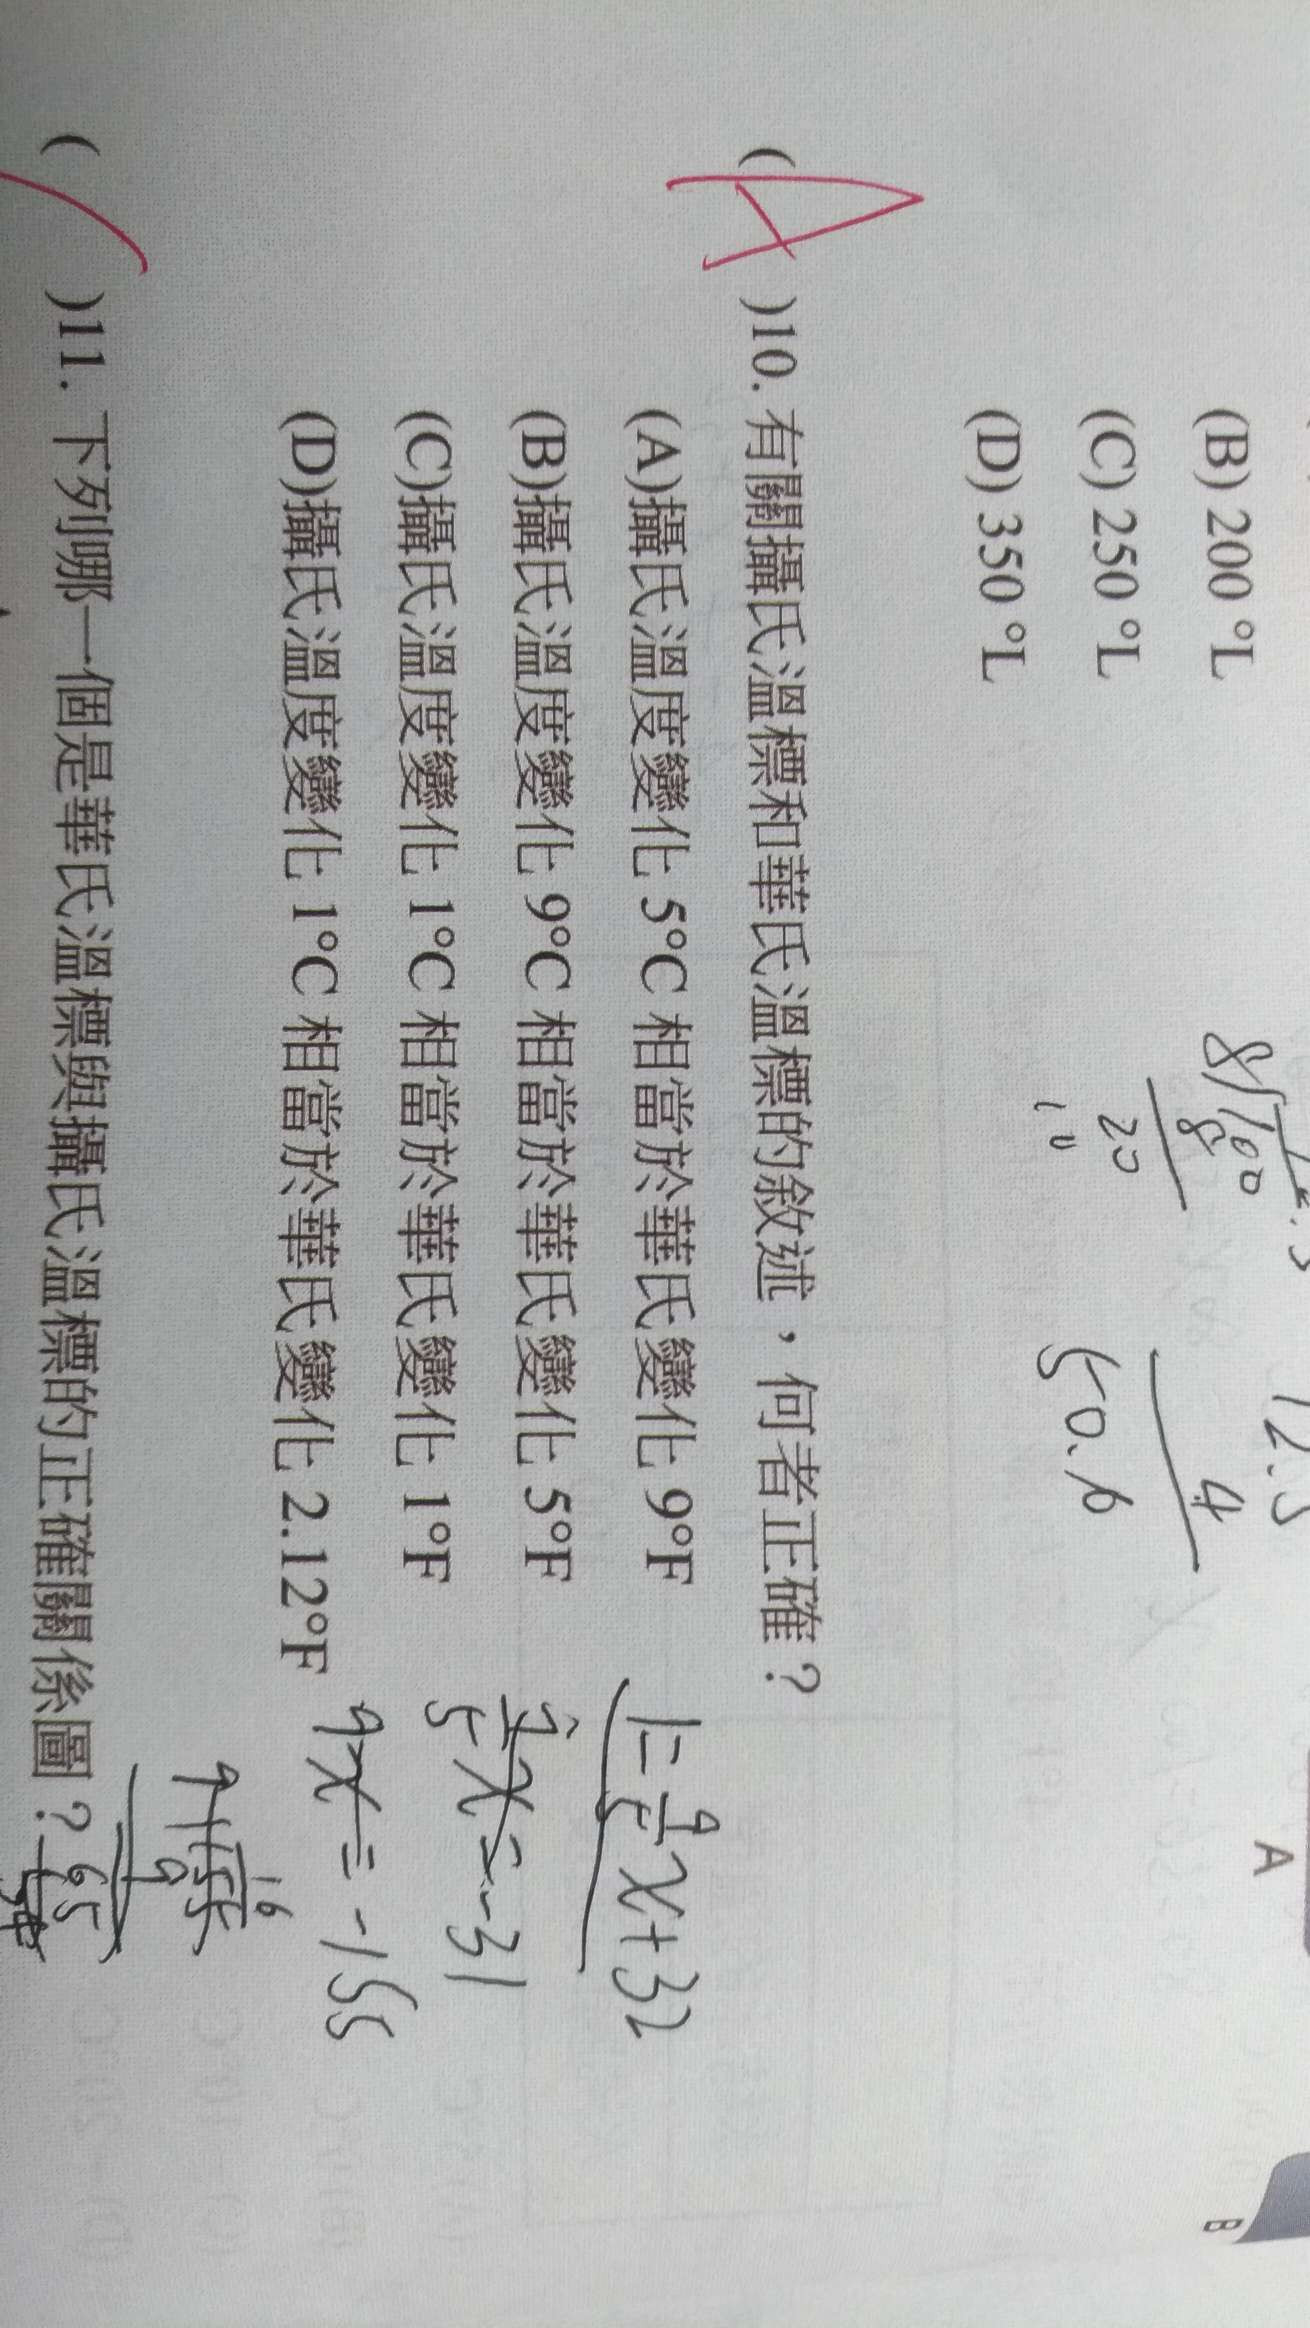 (B) 200 °L
(C) 250 °L
(D) 350 °L
12.5
4
50.6
8 100
8
20
A
B
(A)10. 有關攝氏溫標和華氏溫標的敘述，何者正確？
(A)攝氏溫度變化 5°C 相當於華氏變化 9°F
(B)攝氏溫度變化 9°C 相當於華氏變化 5°F
(C)攝氏溫度變化 1°C 相當於華氏變化 1°F
(D)攝氏溫度變化 1°C 相當於華氏變化 2.12°F
1=9/5x+32
9/5x=-31
9x=-155
16
9 155
9
65
( )11. 下列哪一個是華氏溫標與攝氏溫標的正確關係圖？